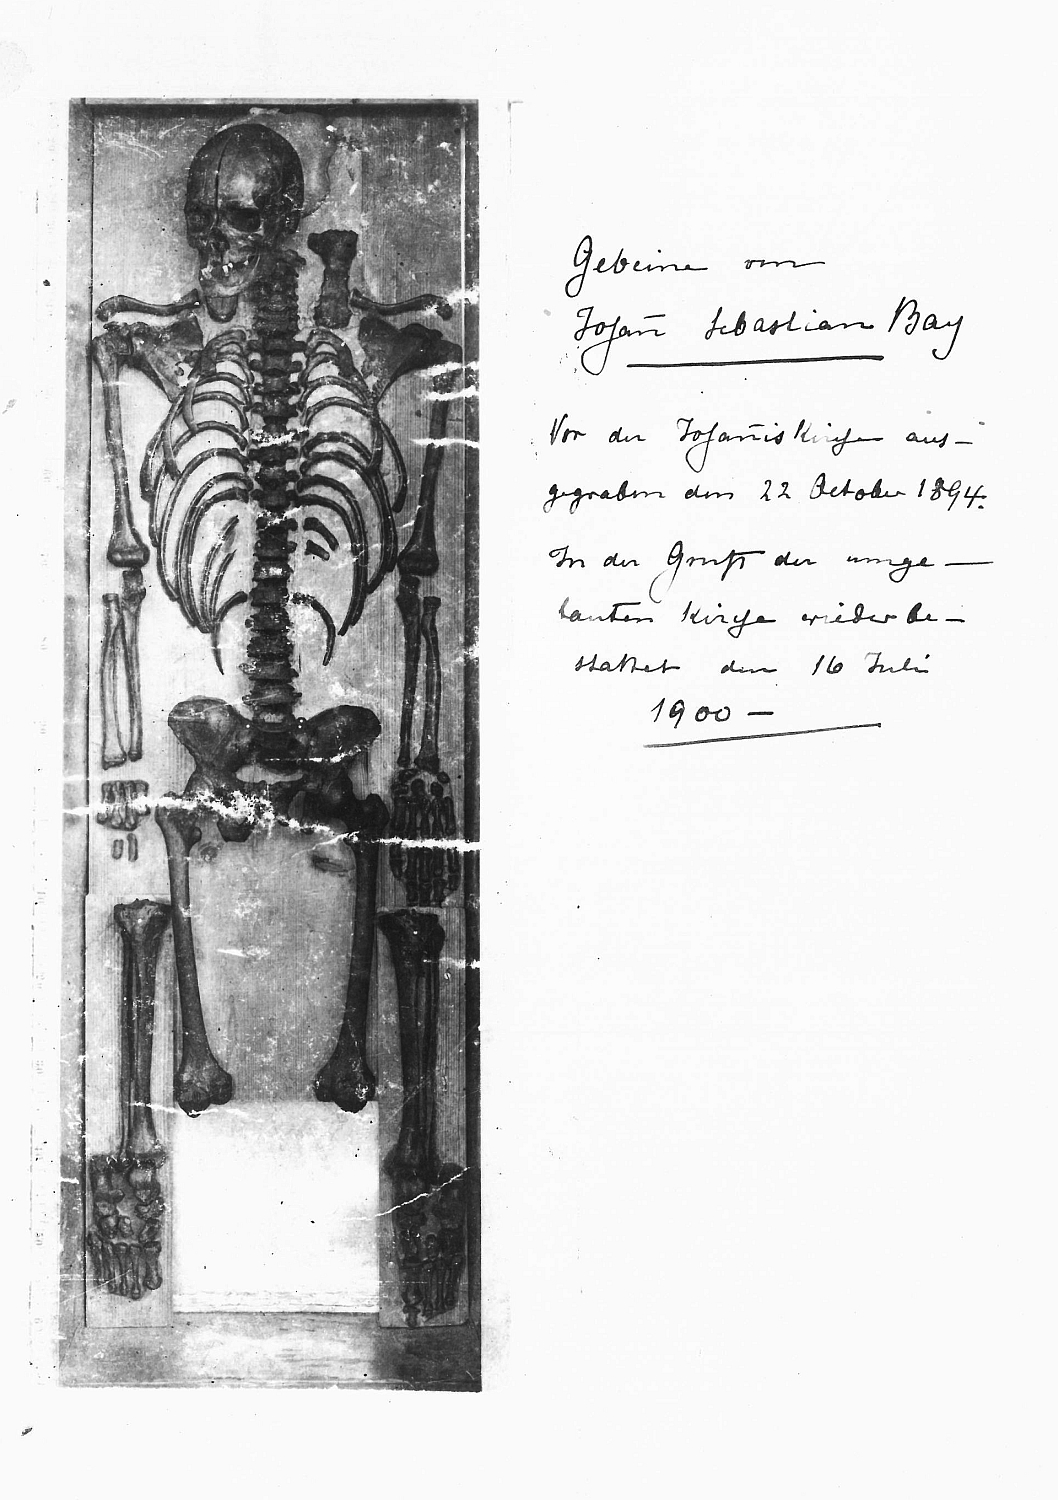 Gebeine von
Johañ Sebastian Bach
Vor der Johañis Kirche aus-
gegraben den 22 October 1894.
In der Gruft der umge-
bauten Kirche wieder be-
stattet den 16 Juli
1900 -